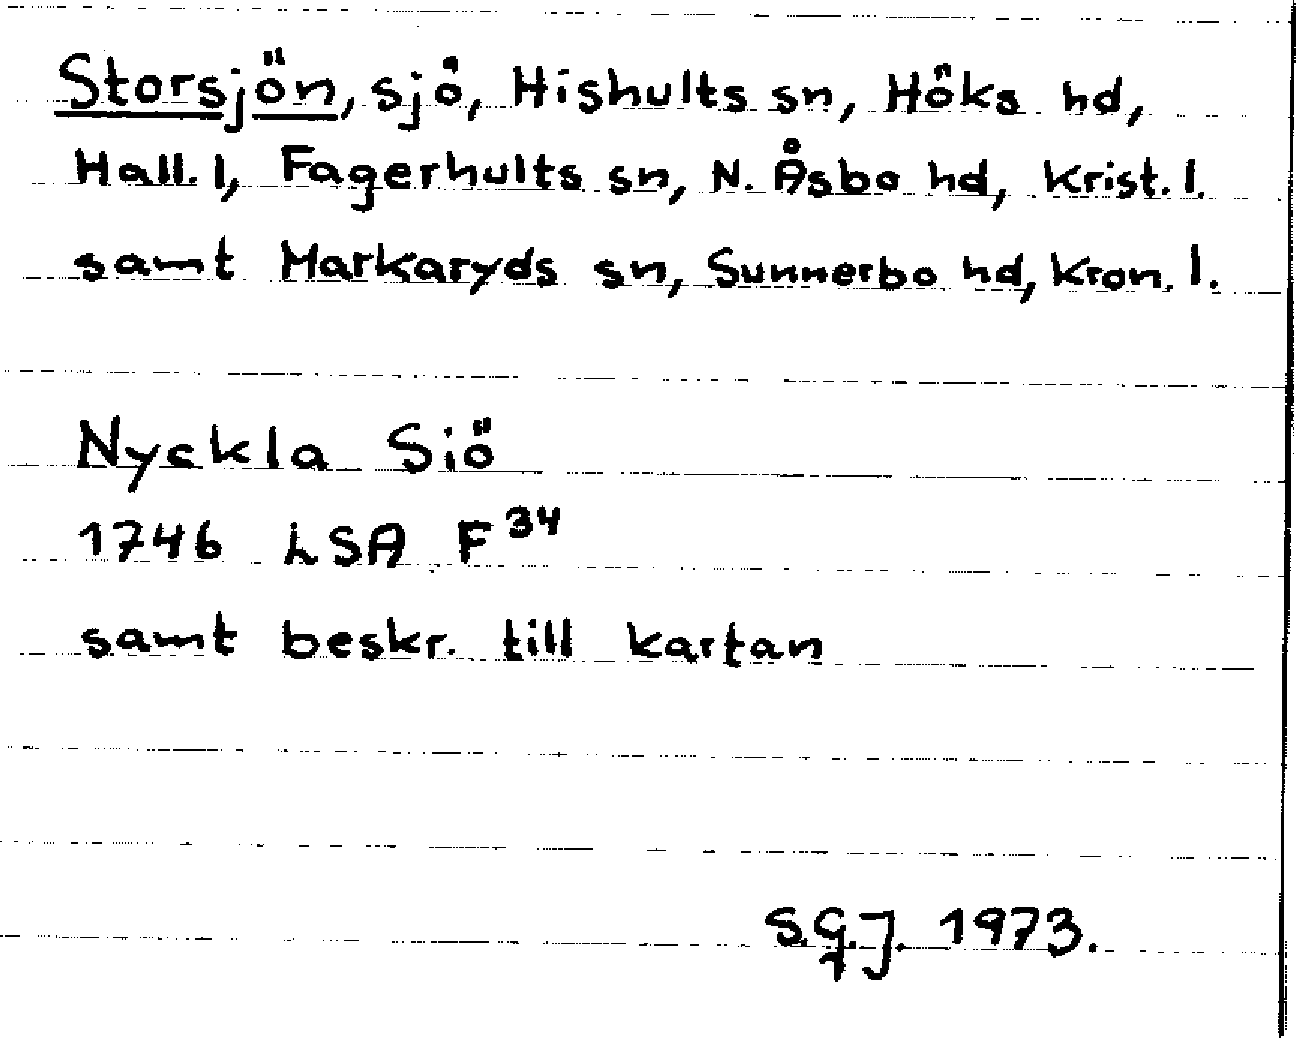 Storsjön, sjö, Hishults sn, Höks hd,
Hall. l, Fagerhults sn, N. Åsbo hd, Krist. l.
samt Markaryds sn, Sunnerbo hd, Kron. l.
Nyckla Siö
1746 LSA F³⁴
samt beskr. till kartan
S.G.J. 1973.